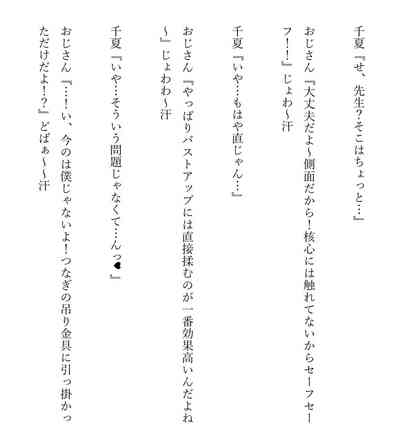 千夏『せ、先生？そこはちょっと…』
おじさん『大丈夫だよ～側面だから！核心には触れてないからセーフセー
フ！！』じょわ～汗
千夏『いや…もはや直じゃん…』
おじさん『やっぱりバストアップには直接揉むのが一番効果高いんだよね
～』じょわわ～汗
千夏『いや…そういう問題じゃなくて…んっ♥』
おじさん『…！い、今のは僕じゃないよ！つなぎの吊り金具に引っ掛かっ
ただけだよ！？』どばぁ～～汗